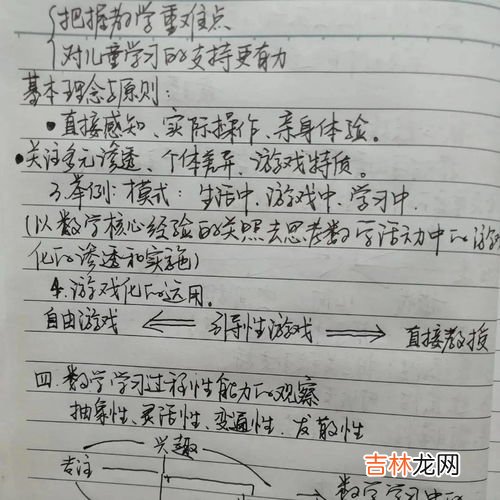 把握教学重难点
对儿童学习的支持更有力
基本理念与原则:
•直接感知、实际操作、亲身体验。
•关注多元渗透、个体差异、游戏特质。
3.举例:模式:生活中、游戏中、学习中.
(以数学核心经验的关照去思考数学活动中的游戏
化的渗透和实施)
4.游戏化的运用。
自由游戏 ⟸ 引导性游戏 ⟹ 直接教授
四.数学学习过程性能力的观察
抽象性、灵活性、变通性、发散性
兴趣
专注
数学学习
吉林龙网